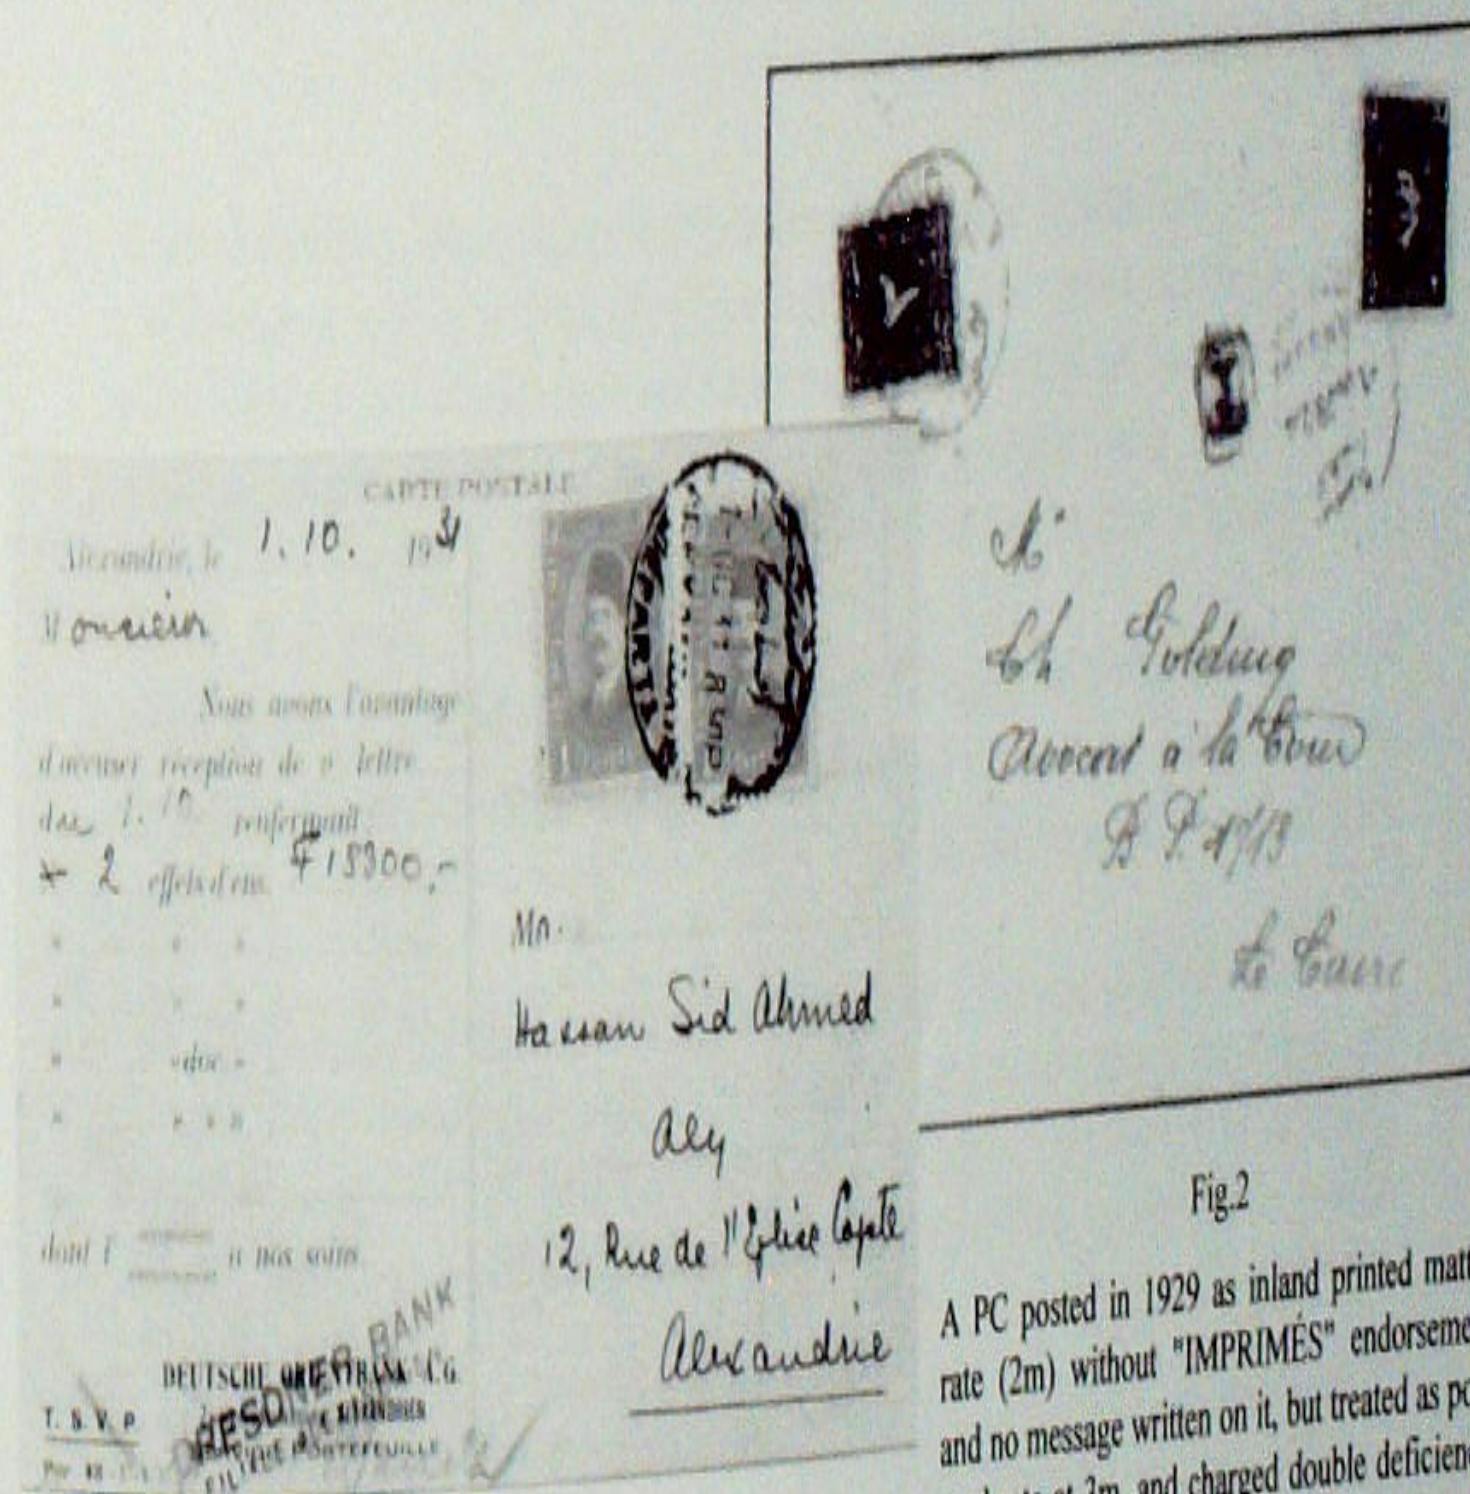 CARTE POSTALE
Alexandrie, le 1. 10. 1931
Monsieur
Nous avons l'avantage
d'accuser réception de v lettre
du 1. 10. renfermant
2 effets d'ens. F 15300,-
" " "
" " "
" "doc "
" " " "
dont f à nos soins
DEUTSCHE ORIENTBANK A.G.
DRESDNER BANK
FILIALE
PORTEFEUILLE
T. S. V. P
Mr.
Hassan Sid Ahmed
Aly
12, Rue de l'Eglise Copte
Alexandrie
T
Mr
Ch Golding
Avocat à la Cour
B P. 1713
Le Caire
Fig.2
A PC posted in 1929 as inland printed matt
rate (2m) without "IMPRIMÉS" endorseme
and no message written on it, but treated as po
at 3m, and charged double deficien